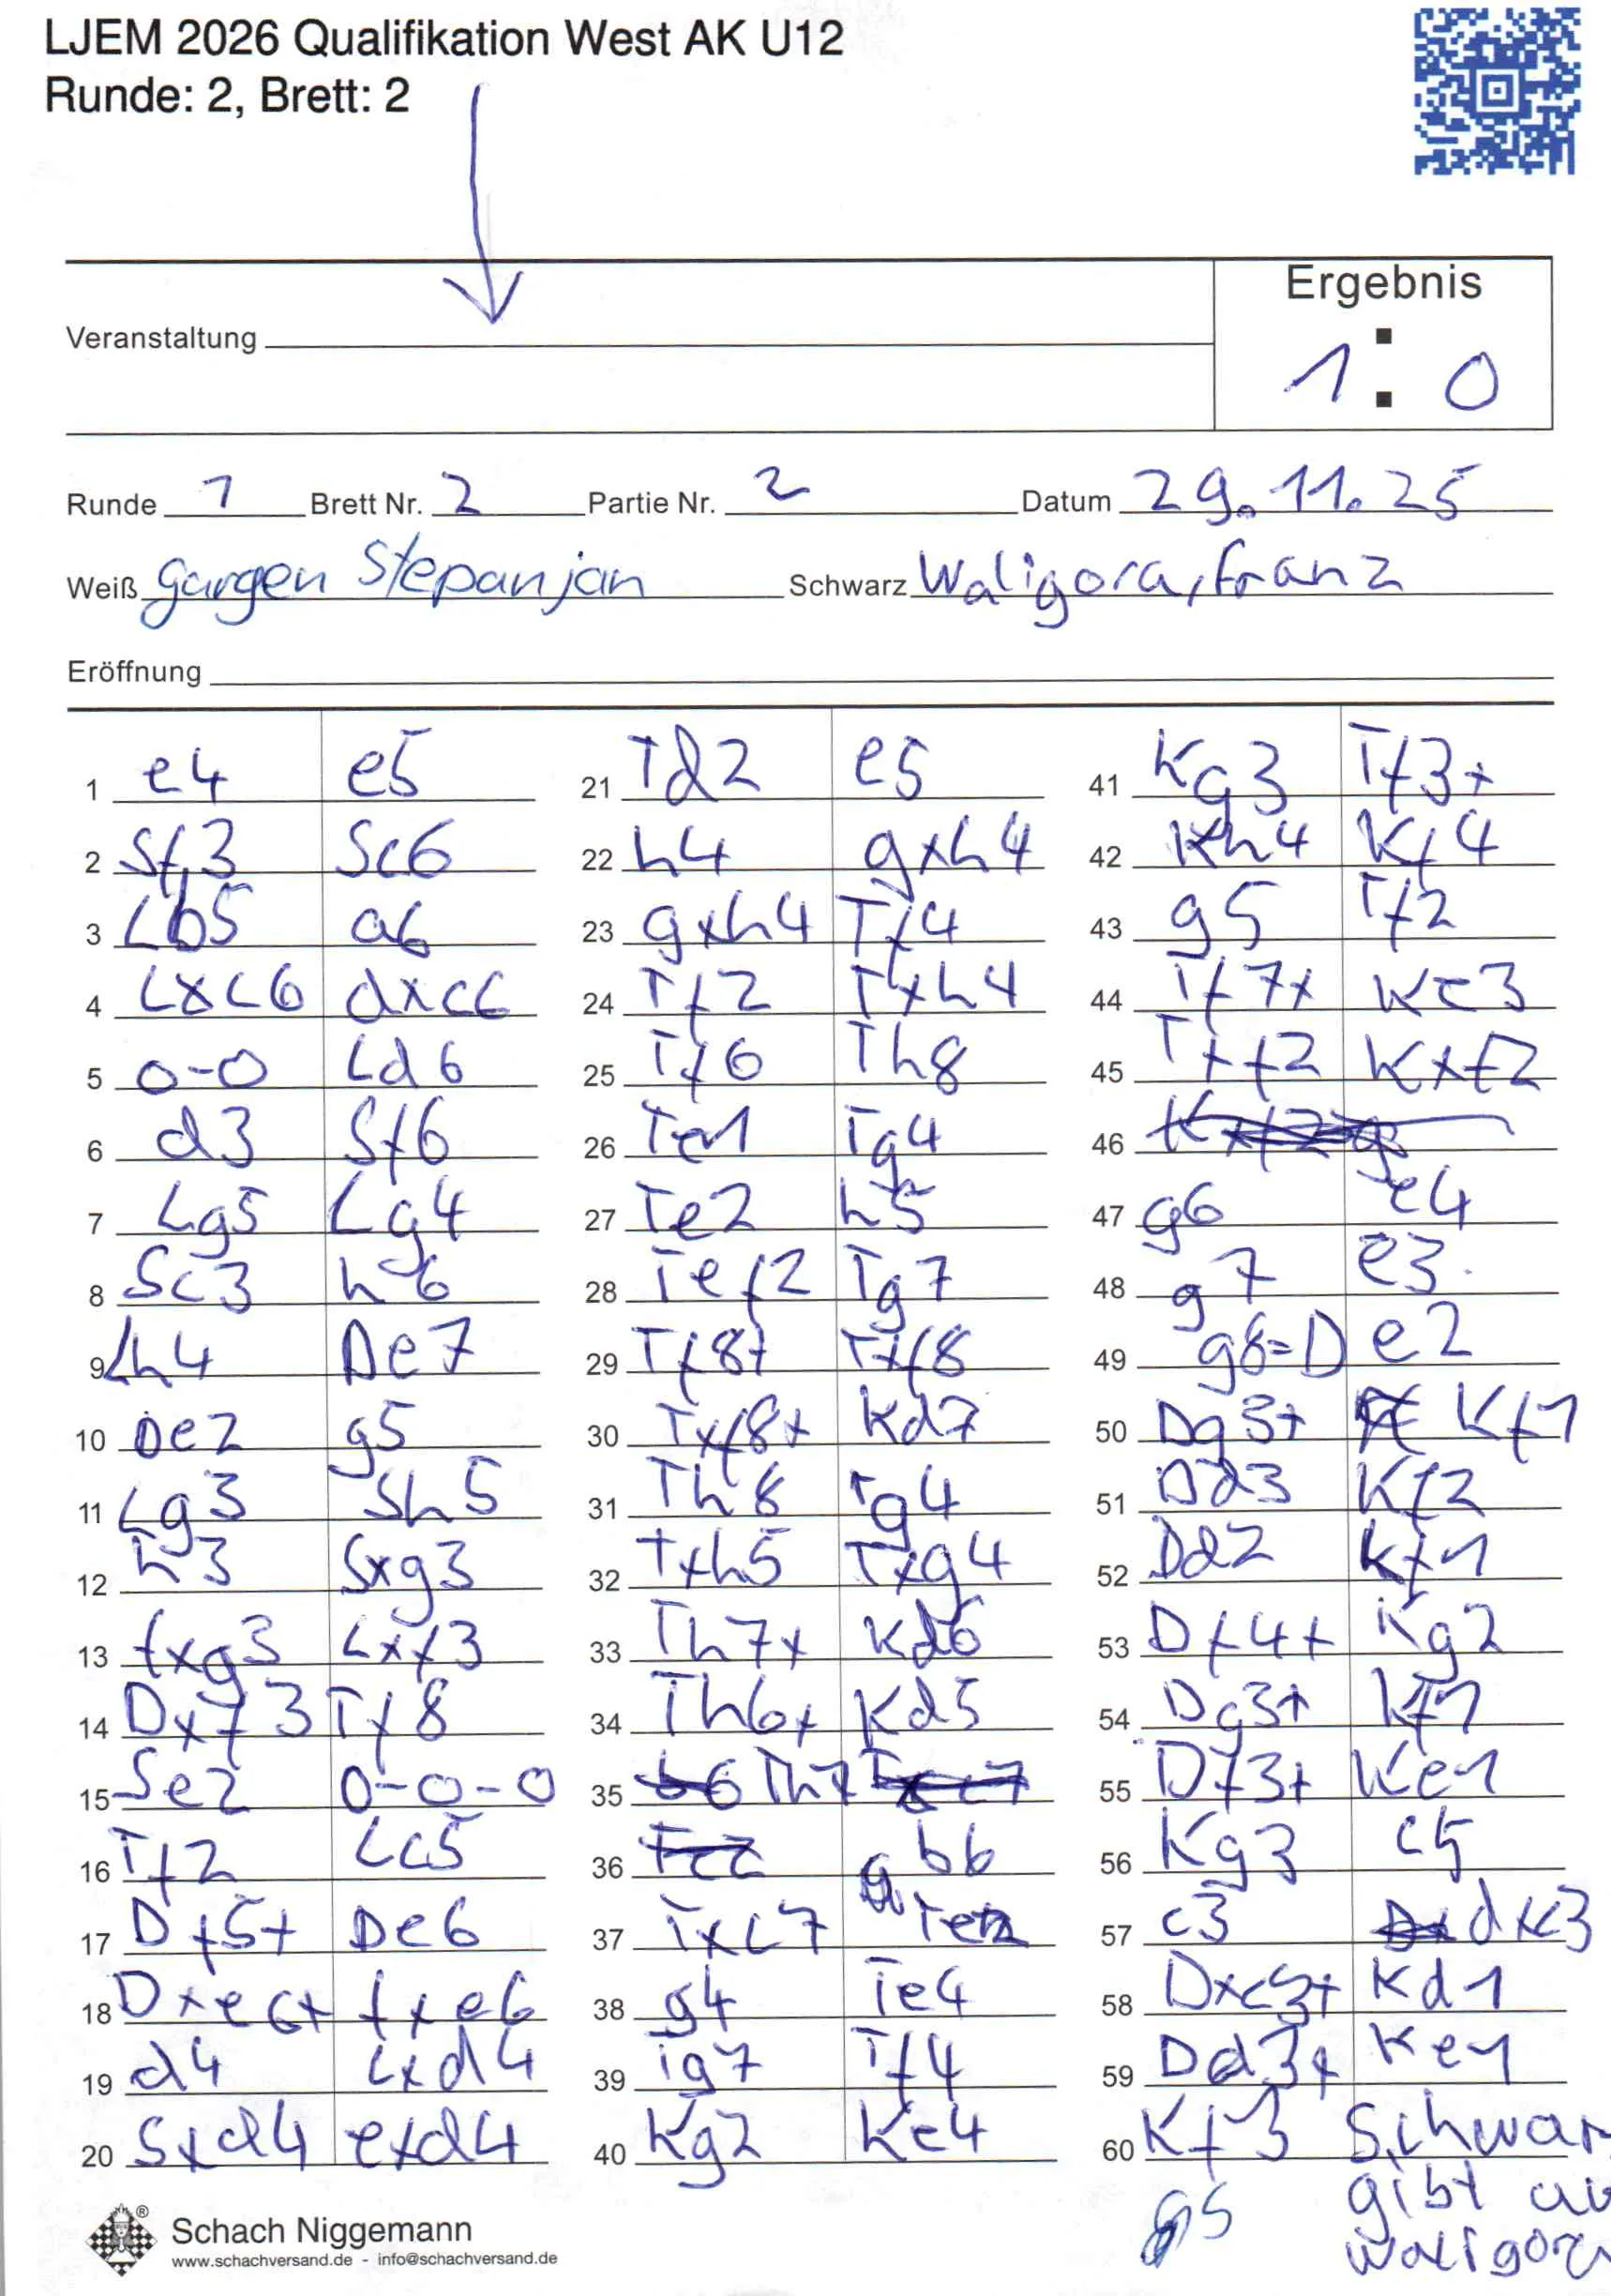 LJEM 2026 Qualifikation West AK U12
Runde: 2, Brett: 2
Ergebnis
1 : 0
Veranstaltung
Runde 1 Brett Nr. 2 Partie Nr. 2 Datum 29.11.25
Weiß Gurgen Stepanjan Schwarz Waligora, Franz
Eröffnung
1 e4 e5
2 Sf3 Sc6
3 Lb5 a6
4 Lxc6 dxc6
5 0-0 Ld6
6 d3 Sf6
7 Lg5 Lg4
8 Sc3 h6
9 Lh4 De7
10 De2 g5
11 Lg3 Sh5
12 h3 Sxg3
13 fxg3 Lxf3
14 Dxf3 Tf8
15 Se2 0-0-0
16 Tf2 Lc5
17 Df5+ De6
18 Dxe6+ fxe6
19 d4 Lxd4
20 Sxd4 exd4
21 Td2 e5
22 h4 gxh4
23 gxh4 Tf4
24 Tf2 Txh4
25 Tf6 Th8
26 Te1 Tg4
27 Te2 h5
28 Tef2 Tg7
29 Tf8+ Txf8
30 Txf8+ Kd7
31 Th8 Tg4
32 Txh5 Txg4
33 Th7+ Kd6
34 Th6+ Kd5
35 Th7
36 b6
37 Txc7
38 g4 Te4
39 Tg7 Tf4
40 Kg2 Ke4
41 Kg3 Tf3+
42 Kh4 Kf4
43 g5 Tf2
44 Tf7+ Ke3
45 Txf2 Kxf2
46
47 g6 e4
48 g7 e3
49 g8=D e2
50 Dg3+ Kf1
51 Dd3 Kf2
52 Dd2 Kf1
53 Df4+ Kg2
54 Dg3+ Kf1
55 Df3+ Ke1
56 Kg3 c5
57 c3 dxc3
58 Dxc3+ Kd1
59 Dd3+ Ke1
60 Kf3 Schwar
gibt au
Waligora
Schach Niggemann
www.schachversand.de - info@schachversand.de